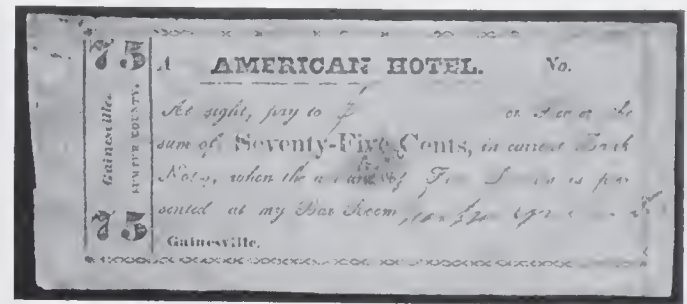 75
Gainesville,
SUMTER COUNTY.
75
A AMERICAN HOTEL. No.
At sight, pay to or bearer the
sum of Seventy-Five Cents, in current Bank
Notes, when the amount of Five is pre-
sented at my Bar Room,
Gainesville.